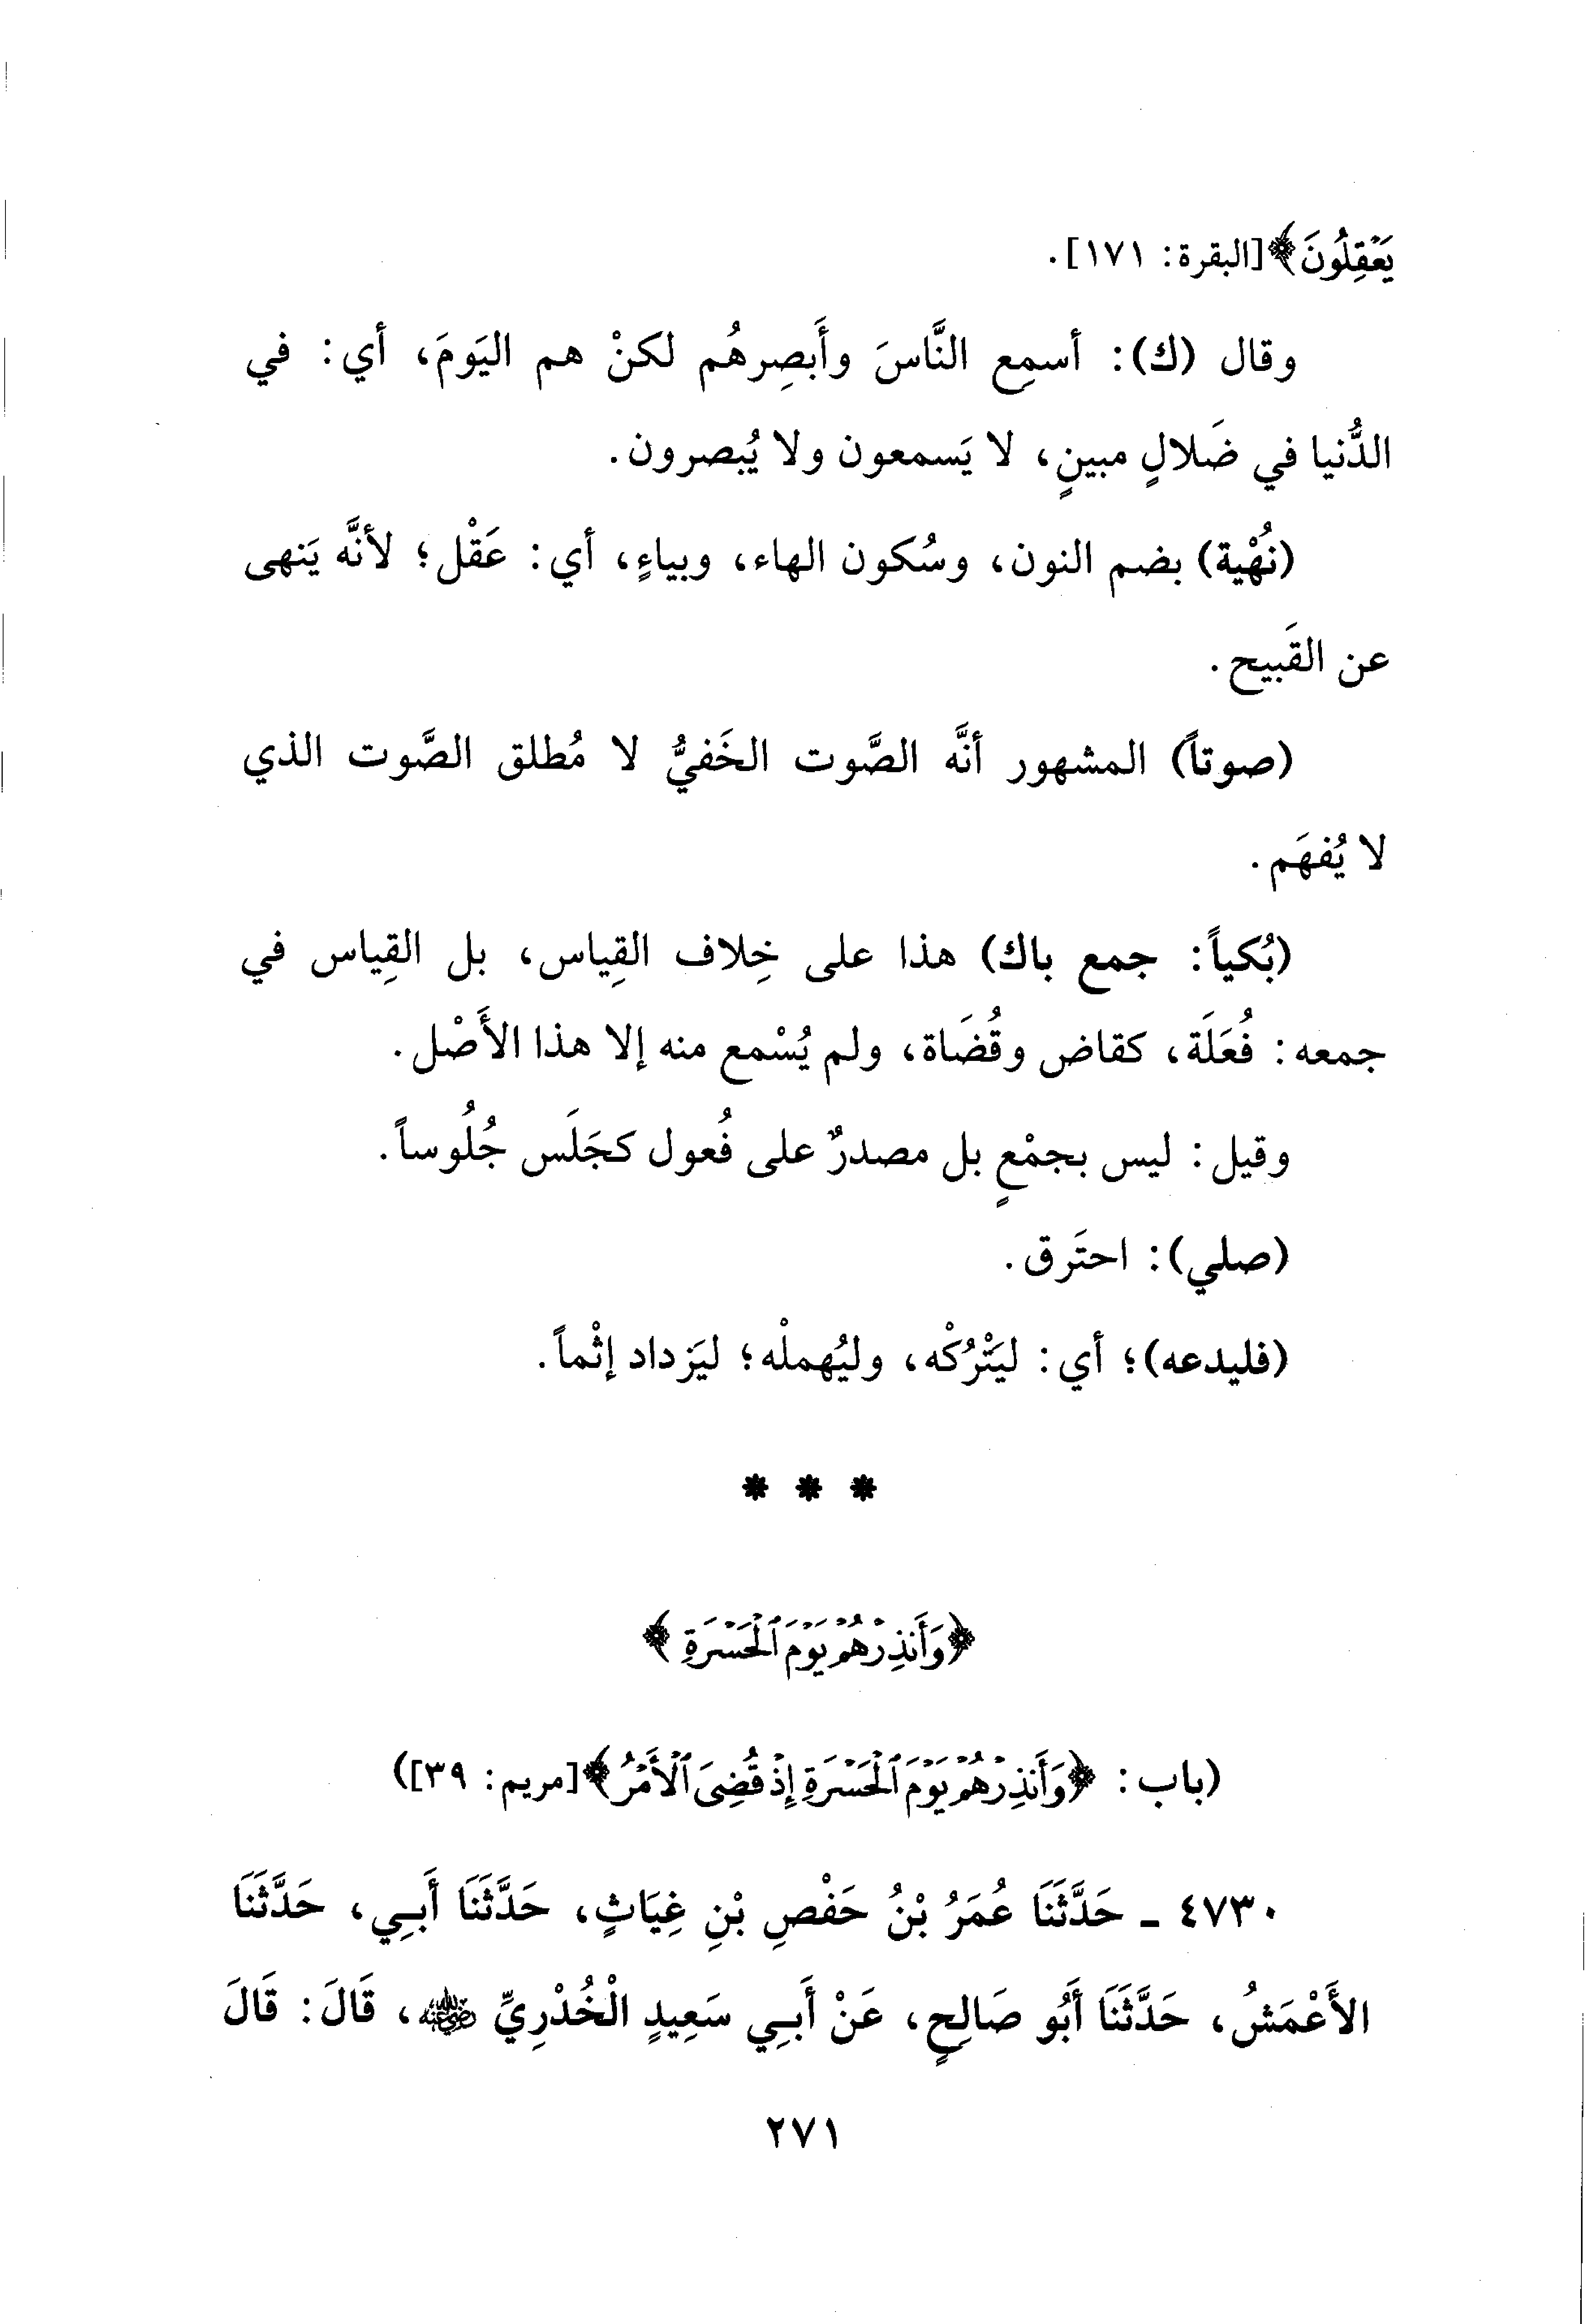 يَعْقِلُونَ﴾[البقرة: ١٧١].
وقال (ك): أسمِع النَّاسَ وأَبصِرهُم لكنْ هم اليَومَ، أي: في
الدُّنيا في ضَلالٍ مبينٍ، لا يَسمعون ولا يُبصرون.
(نُهْية) بضم النون، وسُكون الهاء، وبياءٍ، أي: عَقْل؛ لأنَّه يَنهى
عن القَبيح.
(صوتاً) المشهور أنَّه الصَّوت الخَفيُّ لا مُطلق الصَّوت الذي
لا يُفهَم.
(بُكياً: جمع باك) هذا على خِلاف القِياس، بل القِياس في
جمعه: فُعَلَة، كقاض وقُضَاة، ولم يُسْمع منه إلا هذا الأَصْل.
وقيل: ليس بجمْعٍ بل مصدرٌ على فُعول كجَلَس جُلُوساً.
(صلي): احتَرق.
(فليدعه)؛ أي: ليَتْرُكْه، وليُهملْه؛ ليَزداد إثْماً.
* * *
﴿وَأَنذِرْهُمْ يَوْمَ ٱلْحَسْرَةِ﴾
(باب: ﴿وَأَنذِرْهُمْ يَوْمَ ٱلْحَسْرَةِ إِذْ قُضِىَ ٱلْأَمْرُ﴾[مريم: ٣٩])
٤٧٣٠ ـ حَدَّثَنَا عُمَرُ بْنُ حَفْصِ بْنِ غِيَاثٍ، حَدَّثَنَا أَبِي، حَدَّثَنَا
الأَعْمَشُ، حَدَّثَنَا أَبُو صَالِحٍ، عَنْ أَبِي سَعِيدٍ الْخُدْرِيِّ رضي الله عنه، قَالَ: قَالَ
٢٧١